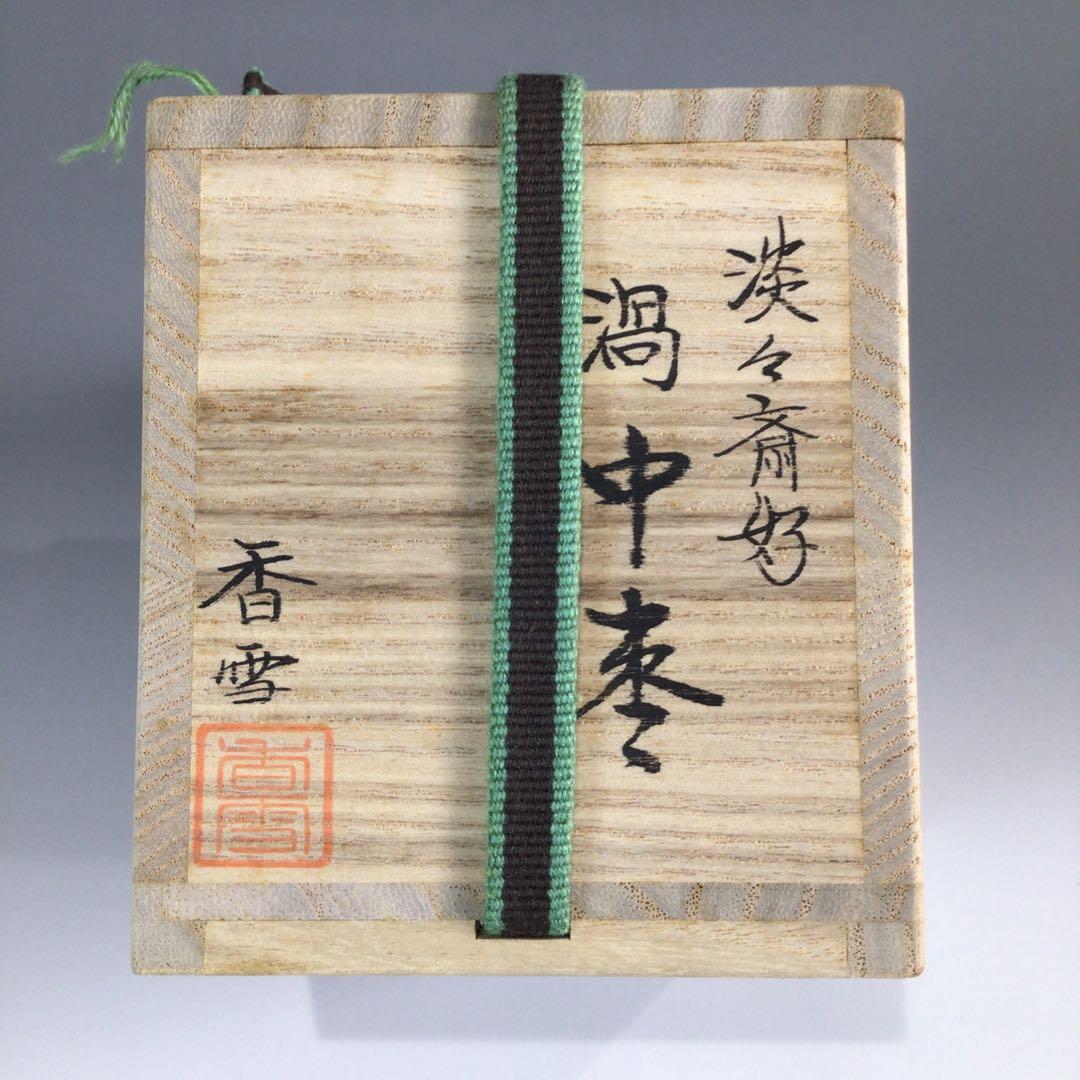 淡々斎好
渦中棗
香雪
香雪